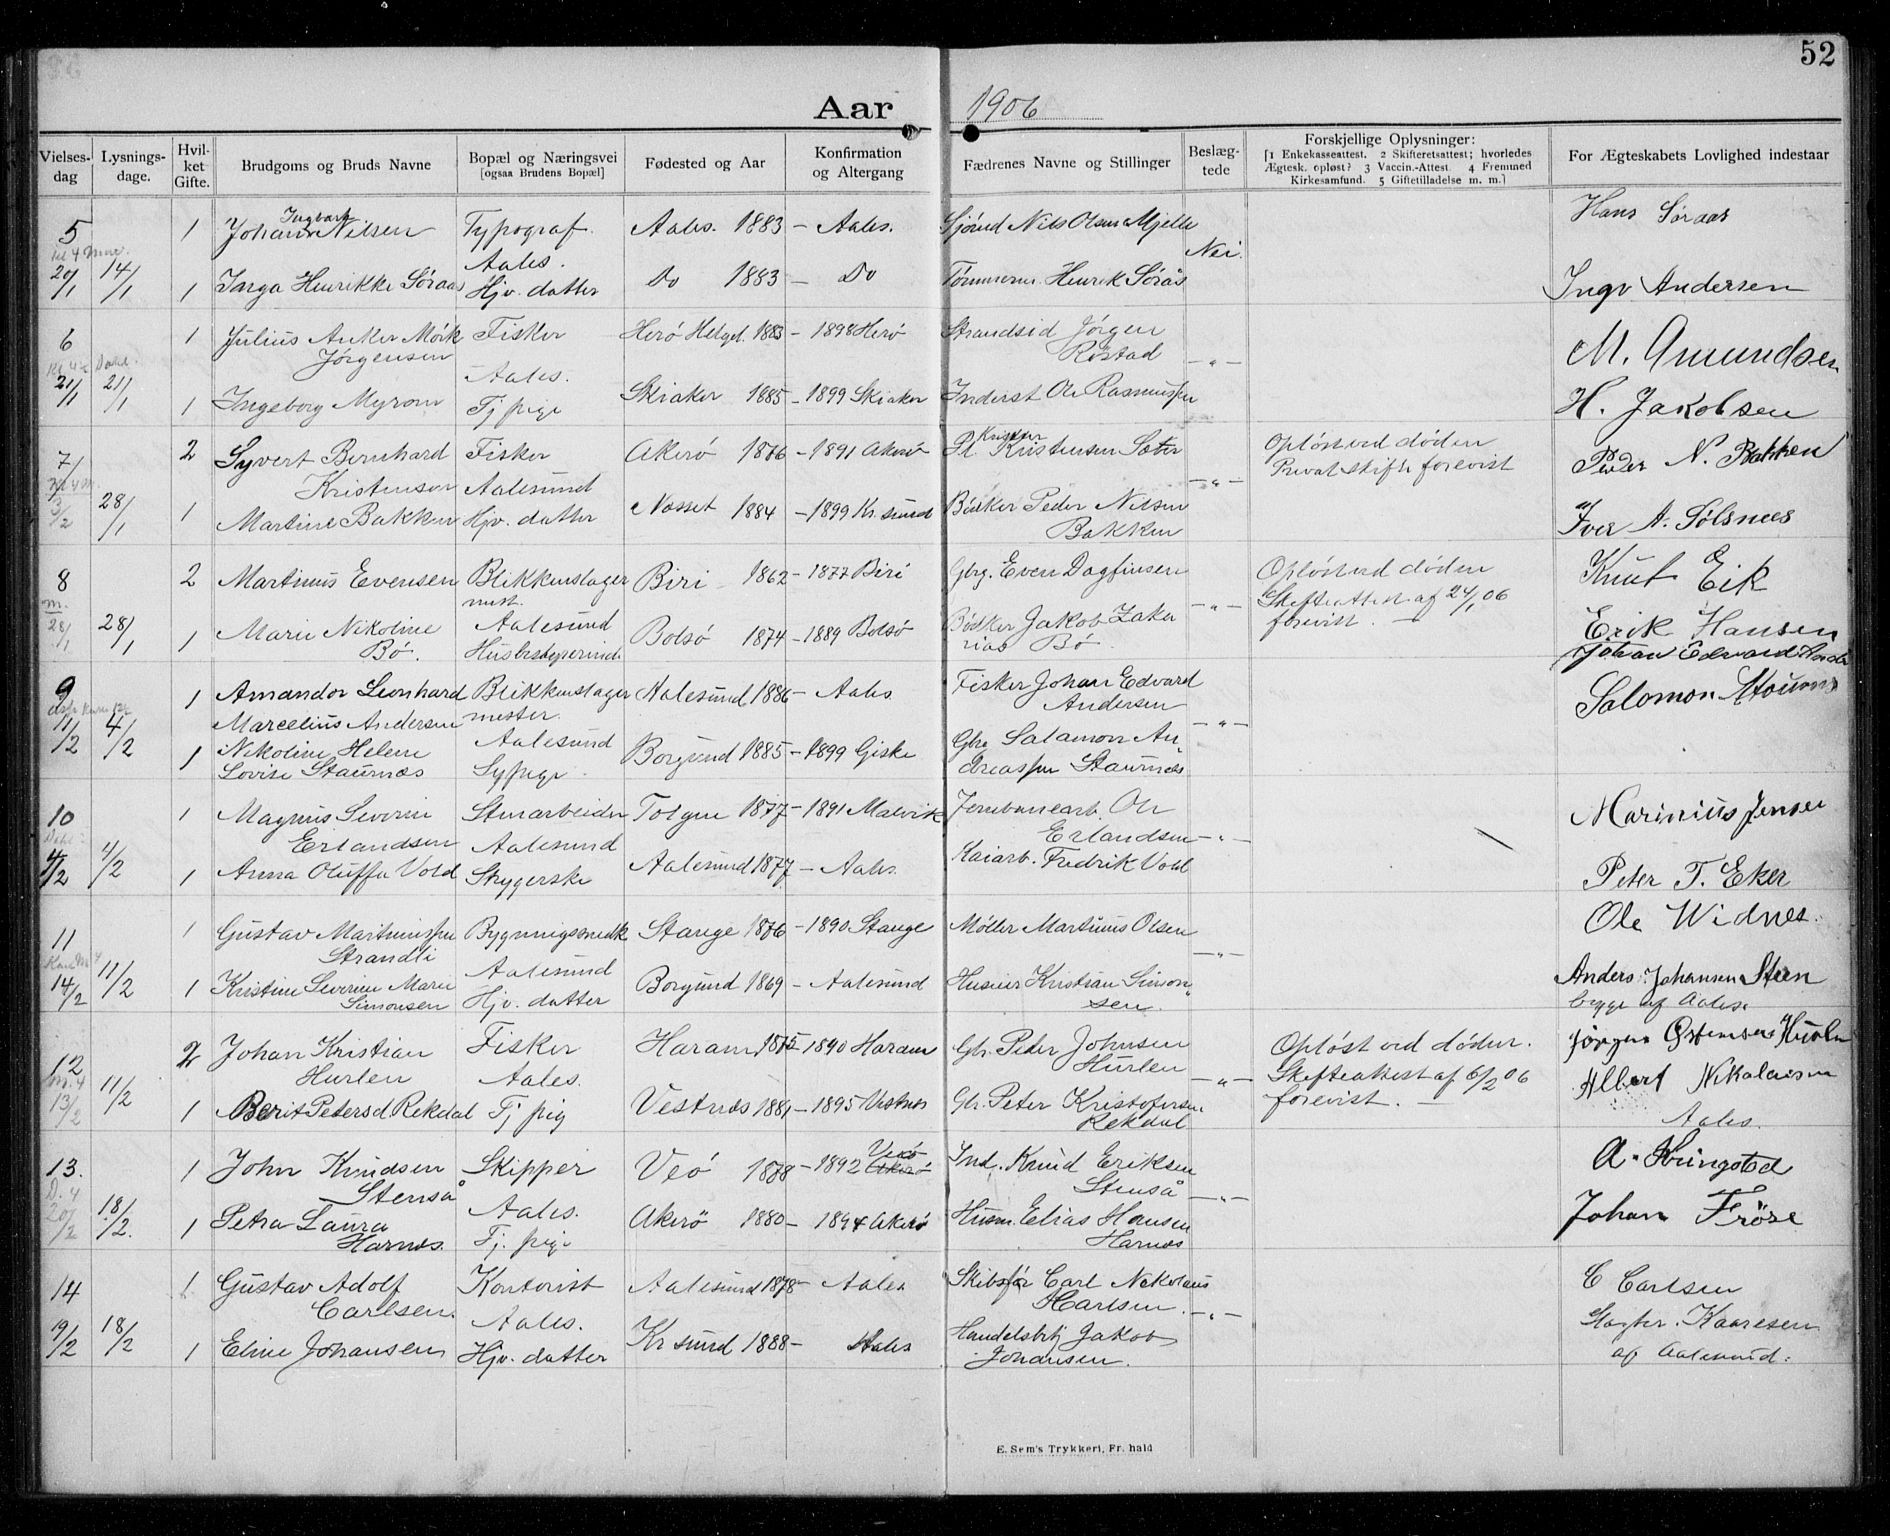 52
Aar 1906
Vielses-dag
Lysnings-dage.
Hvil-ket Gifte.
Brudgoms og Bruds Navne
Bopæl og Næringsvei
[ogsaa Brudens Bopæl]
Fødested og Aar
Konfirmation og Altergang
Fædrenes Navne og Stillinger
Beslæg-tede
Forskjellige Oplysninger:
[1 Enkekasseattest. 2 Skifteretsattest; hvorledes
Ægtesk. opløst? 3 Vaccin.-Attest. 4 Fremmed
Kirkesamfund. 5 Giftetilladelse m. m.]
For Ægteskabets Lovlighed indestaar
5 1 Johan Ingbart Nilsen Typograf. Aales. 1883 – Aales. Nils Olsen Mjelle Hans Søraas
Aales. Nei.
20/1 14/1 1 Inga Henrikke Søraas Hjv. datter Do 1883 – Do Henrik Sørås Ingv Andersen
6 1 Julius Anker Mørk Fisker Herø Helgel. 1883 – 1898 Herø Strandsid Jørgen M. Amundsen
Jørgensen Røstad
21/1 21/1 Aales. – " –
1 Ingeborg Myrom Tj pige Skiaker 1885 – 1899 Skiaker Inderst Ole Rasmussen H. Jakobsen
7 2 Syvert Bernhard Fisker Akerø 1876 – 1891 Akerø Kristensen Sæter Opløst ved døden Peder N. Bakken
Kristensen Aalesund Privat skifte forevist
3/2 28/1 – " –
1 Martine Bakken Hjv. datter Nesset 1884 – 1899 Kr. sund Bødker Peder Nilsen Iver A. Sølsnes
Bakken
8 2 Martinus Evensen Blikkenslager Biri 1862 – 1877 Biri Gbrg. Even Dagfinsen Opløst ved døden Knut Eik
mest. Skifteattest af 24/1 06
28/1 28/1 Aalesund – " – forevist. –
1 Marie Nikoline Husbestyrerinde Bolsø 1874 – 1889 Bolsø Bødker Jakob Zaka Erik Hansen
Bø. rias Bø.
9 1 Amandor Leonhard Blikkenslager Aalesund 1886 – Aales Fisker Johan Edvard Johan Edvard
Marcelius Andersen mester. Andersen Salomon
11/2 4/2 – " –
1 Nikoline Helene Aalesund Borgund 1885 – 1899 Giske Gbr. Salamon An
Lovise Staurnæs Sypige dreassen Staurnæs
10 1 Magnus Severin Stenarbeider Tolgen 1877 – 1891 Malvik Jernbanearb. Ole Marinius Jensen
Erlandsen Aalesund Erlandsen – " –
4/2 4/2 1 Anna Oluffa Vold Strygerske Aalesund 1877 – Aales. Kaiarb. Fredrik Vold Peter T. Eker
11 1 Gustav Martinussen Bygningssnedk Stange 1876 – 1890 Stange Møller Martinus Olsen Ole Widnes.
Strandli
14/2 11/2 Aalesund – " –
1 Kristine Severine Marie Hjv. datter Borgund 1869 – Aalesund Kristian Simon Anders Johansen Steen
Simonsen sen. begge af Aales.
12 2 Johan Kristian Fisker Haram 1875 – 1890 Haram Gbr. Peder Johnsen Opløst ved døden. Jørgen
Hurlen Aales. Hurlen Skifteattest af 6/2 06
13/2 11/2 – " – forevist. –
1 Berit Petersd Rekdal Tj pig Vestnæs 1881 – 1895 Vestnæs Gbr. Peter Kristofersen Albert Nikolaisen
Rekdal Aales.
13. 1 John Knudsen Skipper Veø 1878 – 1892 Veø Ind. Knud Eriksen A. Kringstad
Stenså Stenså
20/2 18/2 Aales. – " –
1 Petra Laura Tj. pige Akerö 1880 – 1894 Akerö Husm. Elias Hansen Johan Frøse
Harnæs. Harnæs
14 1 Gustav Adolf Kontorist Aalesund 1878 – Aales Skibsfør Carl Nikolaus C Carlsen
Carlsen. Carlsen.
19/2 18/2 Aales. – " –
1 Eline Johansen Hjv. datter Kr sund 1888 – Aales Jakob Kaaresen
Johansen. af Aalesund.
E. Sem's Trykkeri, Fr. hald